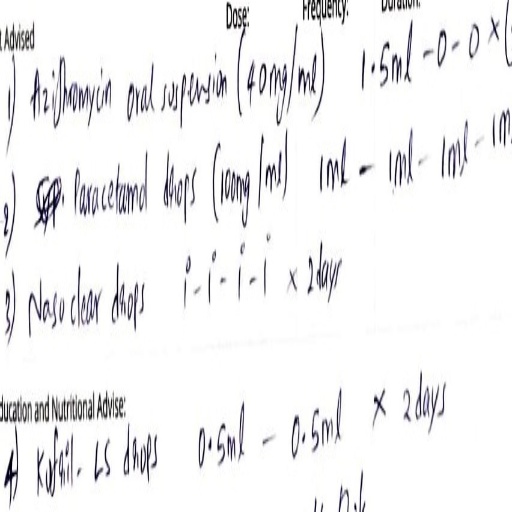 Dose: Frequency: Duration:
t Advised
1) Azithromycin oral suspension (40mg/ml) 1.5ml - 0 - 0 × (
2) Paracetamol drops (100mg/ml) 1ml - 1ml - 1ml - 1m
3) Nasoclear drops i - i - i - i × 2 days
ducation and Nutritional Advise:
4) LS drops 0.5ml - 0.5ml × 2 days